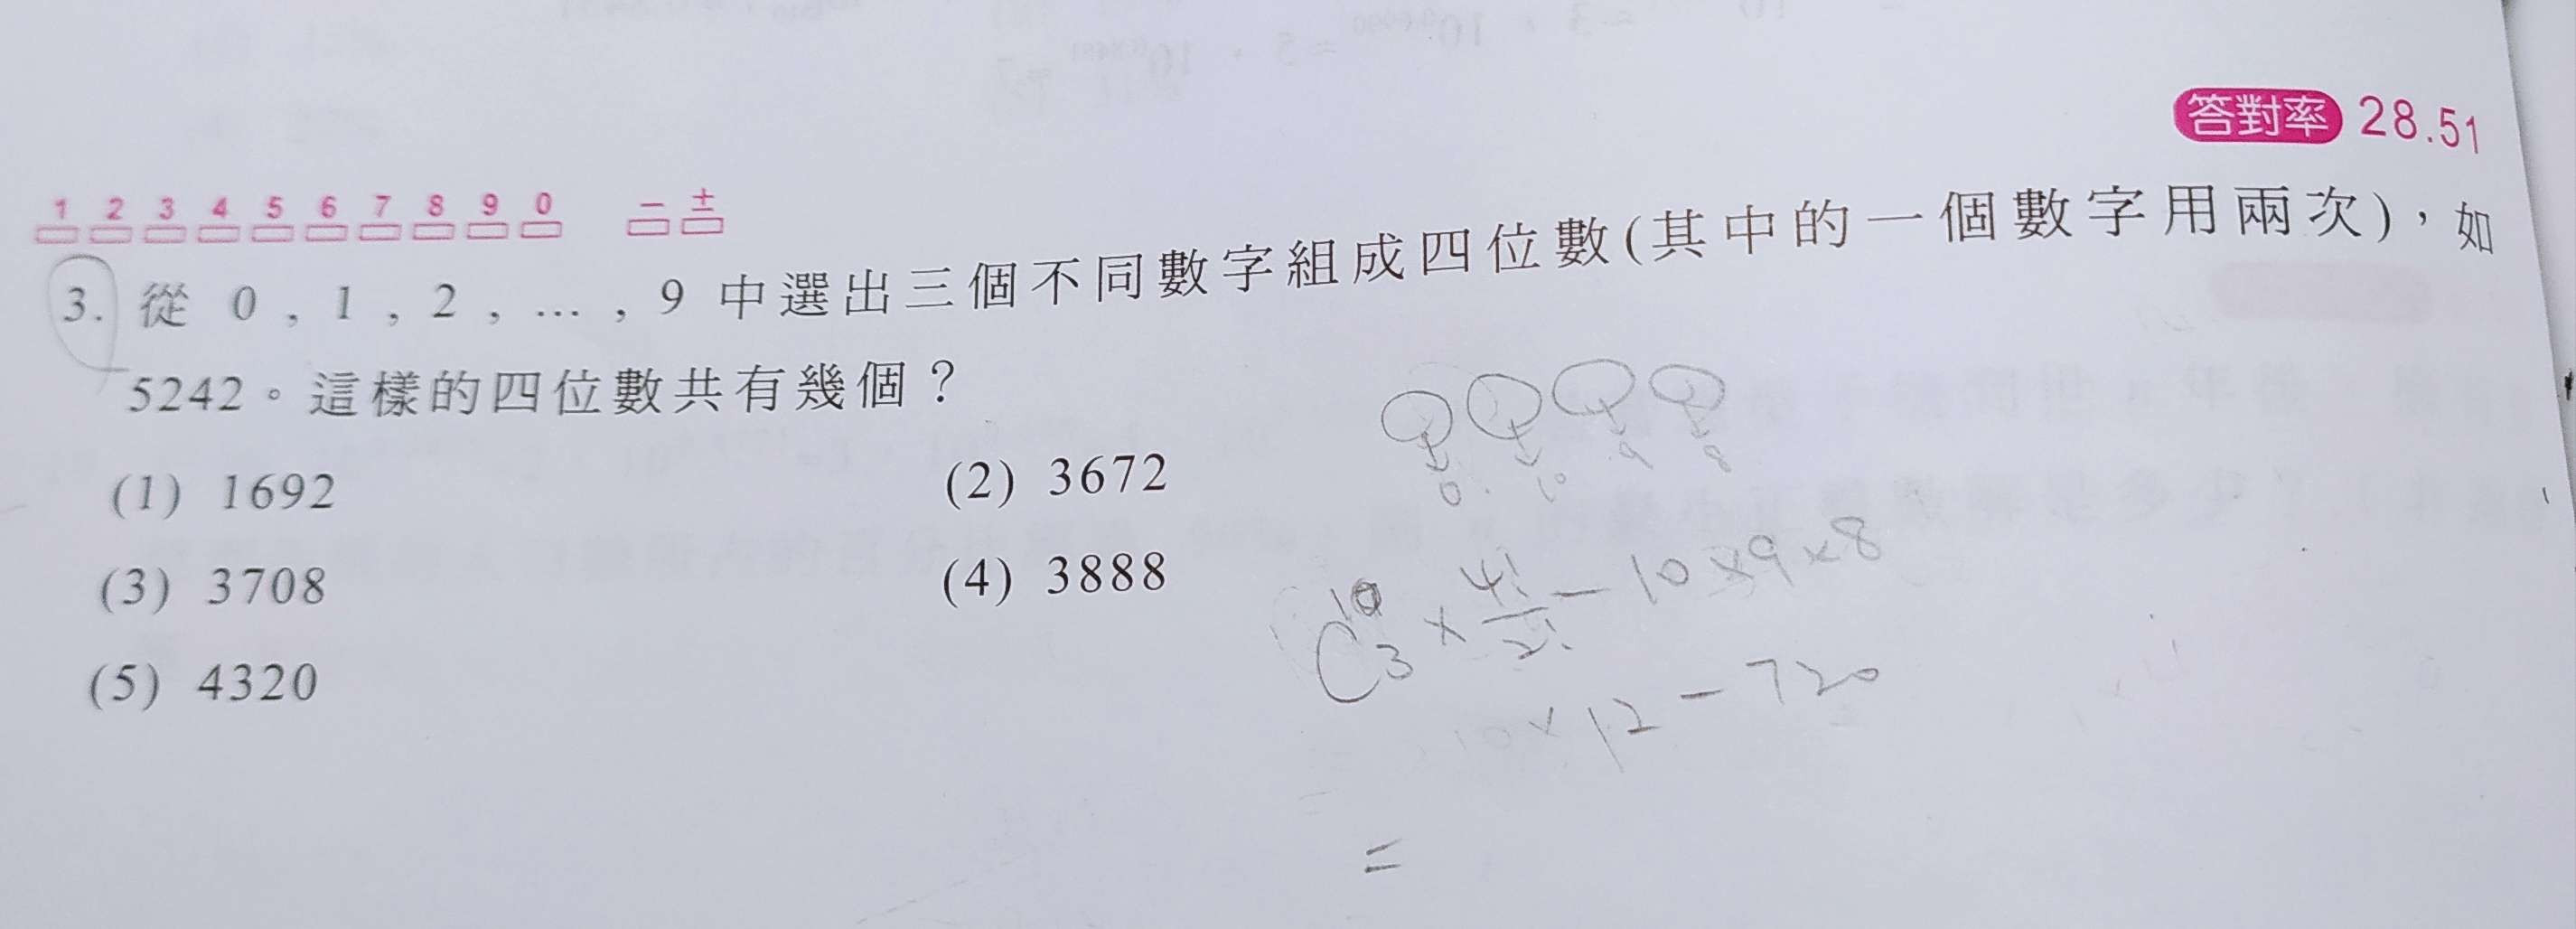 答對率 28.51
1 2 3 4 5 6 7 8 9 0 − ±
3. 從 0 , 1 , 2 , … , 9 中選出三個不同數字組成四位數(其中的一個數字用兩次),如
5242。這樣的四位數共有幾個?
(1) 1692 (2) 3672
(3) 3708 (4) 3888
(5) 4320
0. 10 9 8
C 10 3 × 4!/2! − 10×9×8
10×12−720
=